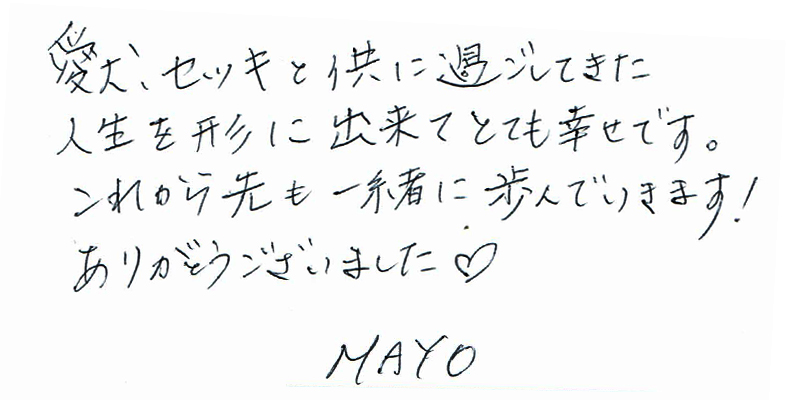 愛犬、セッキと供に過ごしてきた
人生を形に出来てとても幸せです。
これから先も一緒に歩んでいきます!
ありがとうございました♡
MAYO